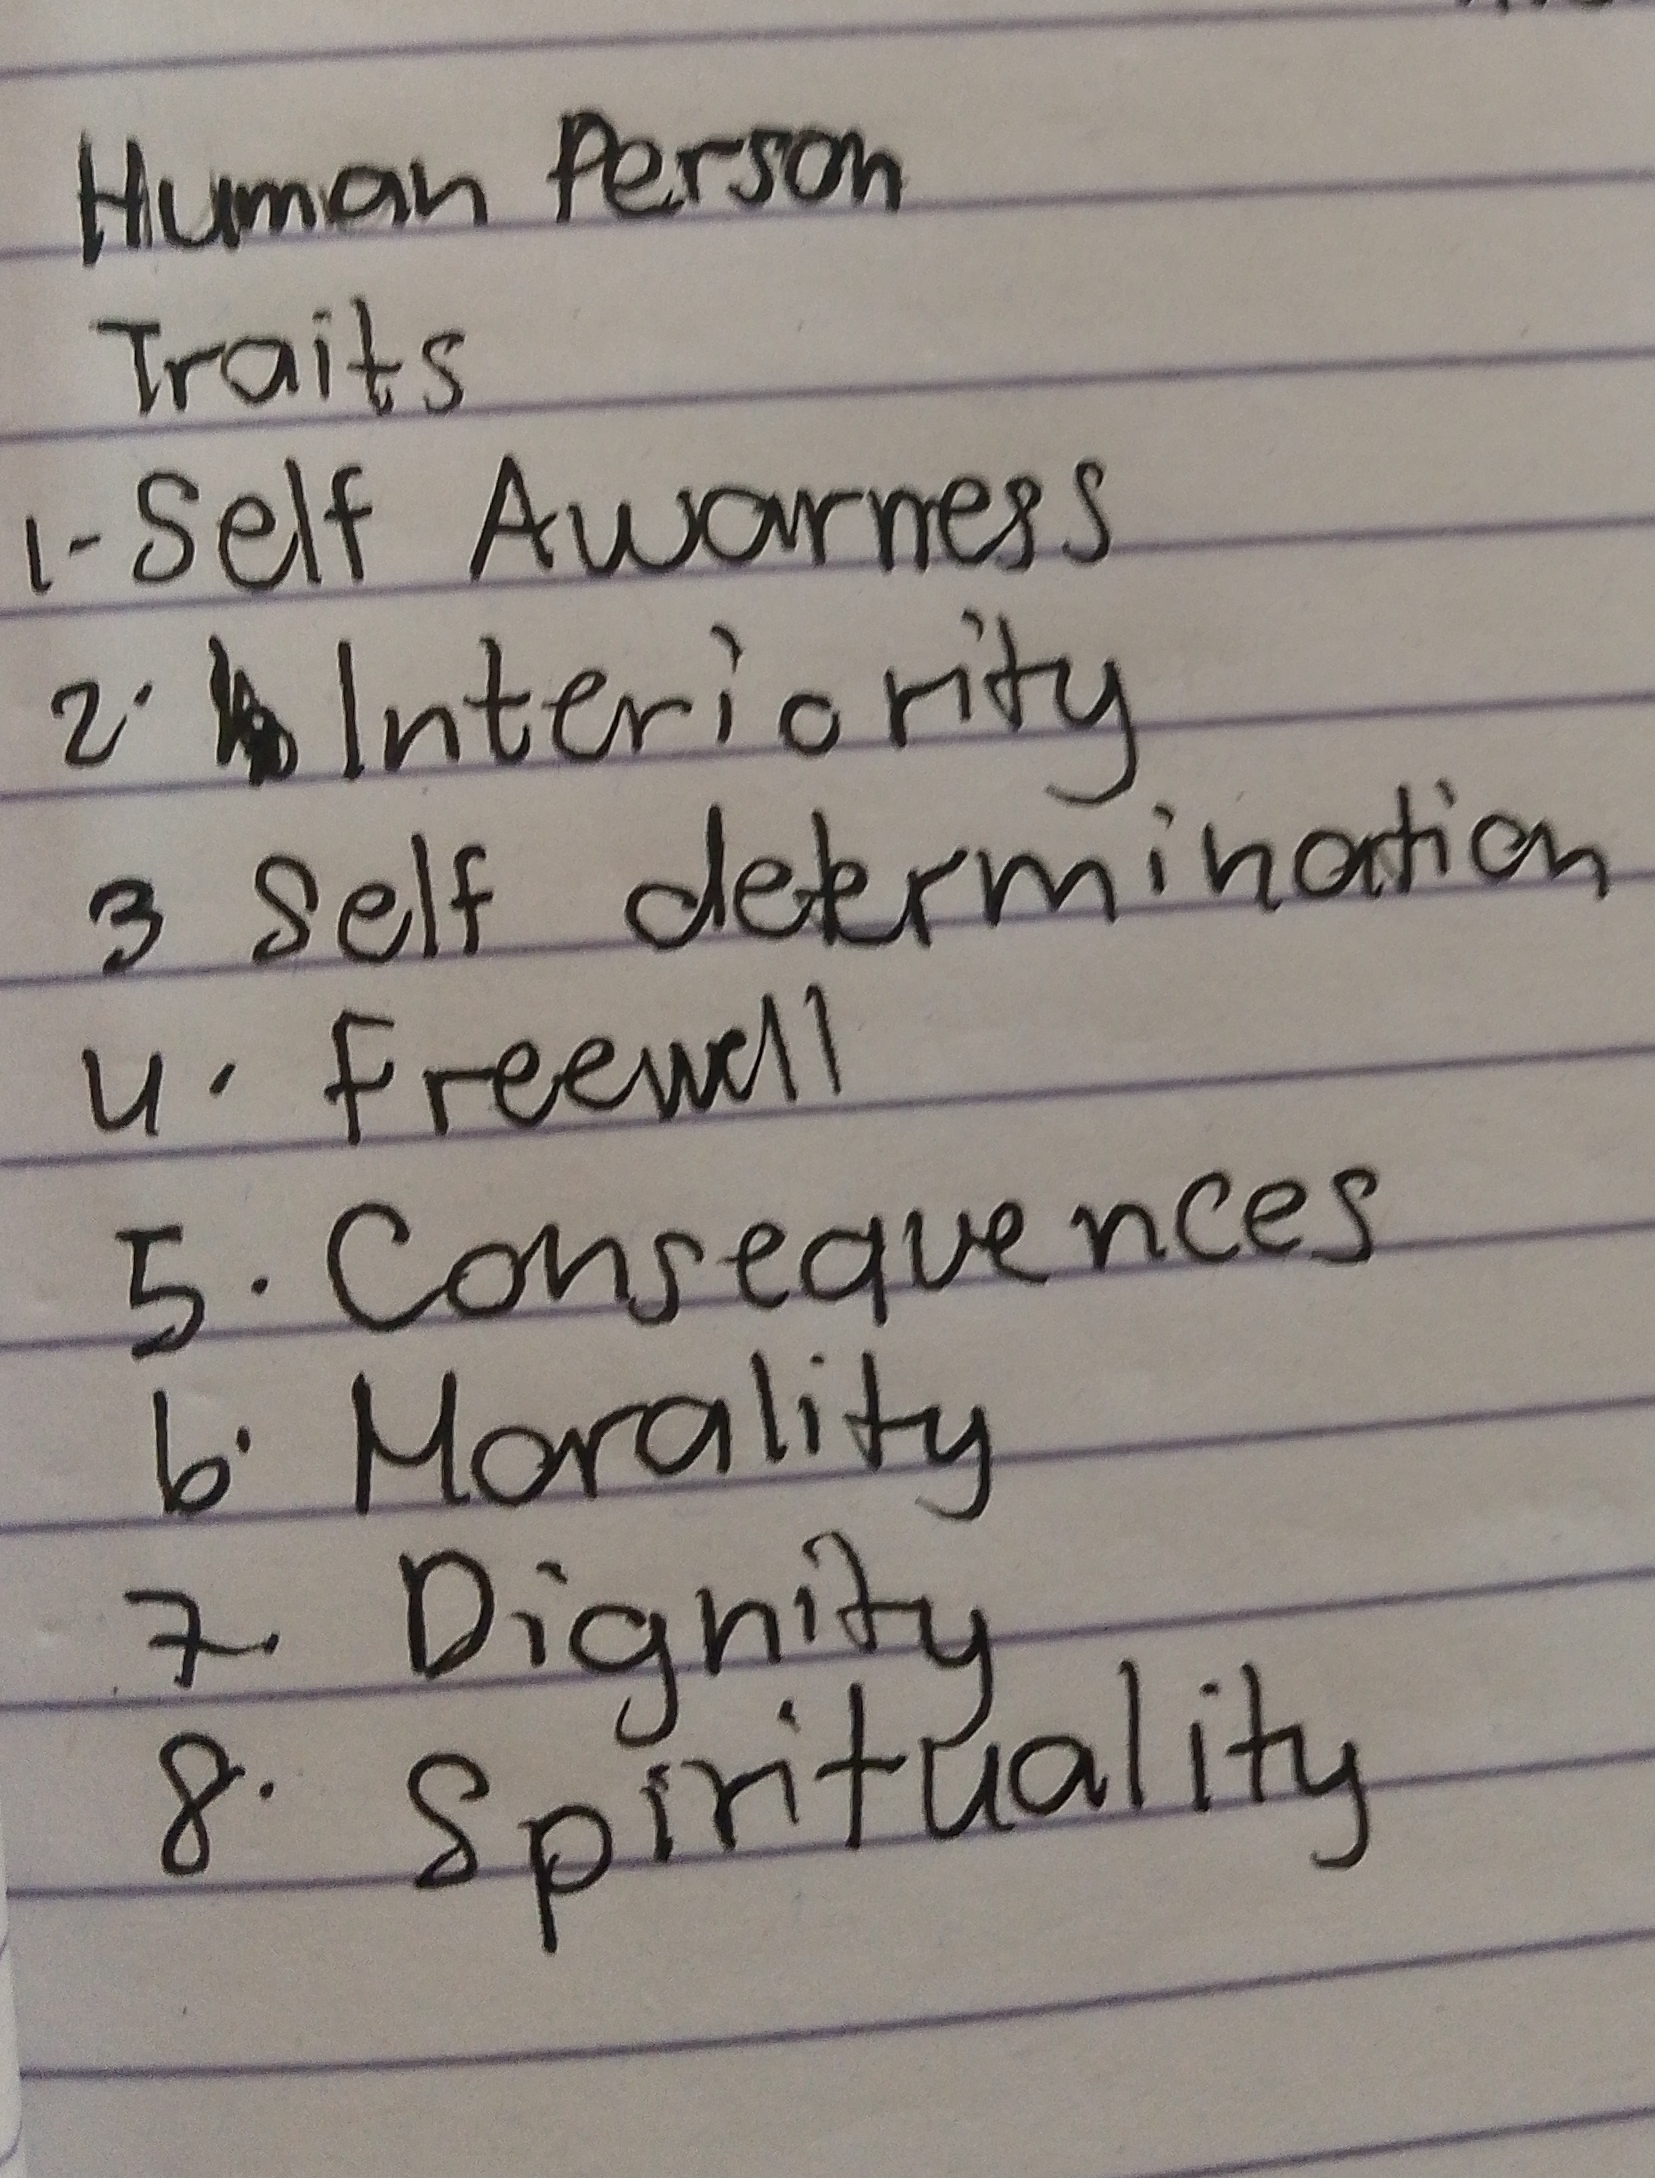 Human Person
Traits
1- Self Awarness
2. Interiority
3 Self determination
4. Freewill
5. Consequences
6. Morality
7. Dignity
8. Spirituality